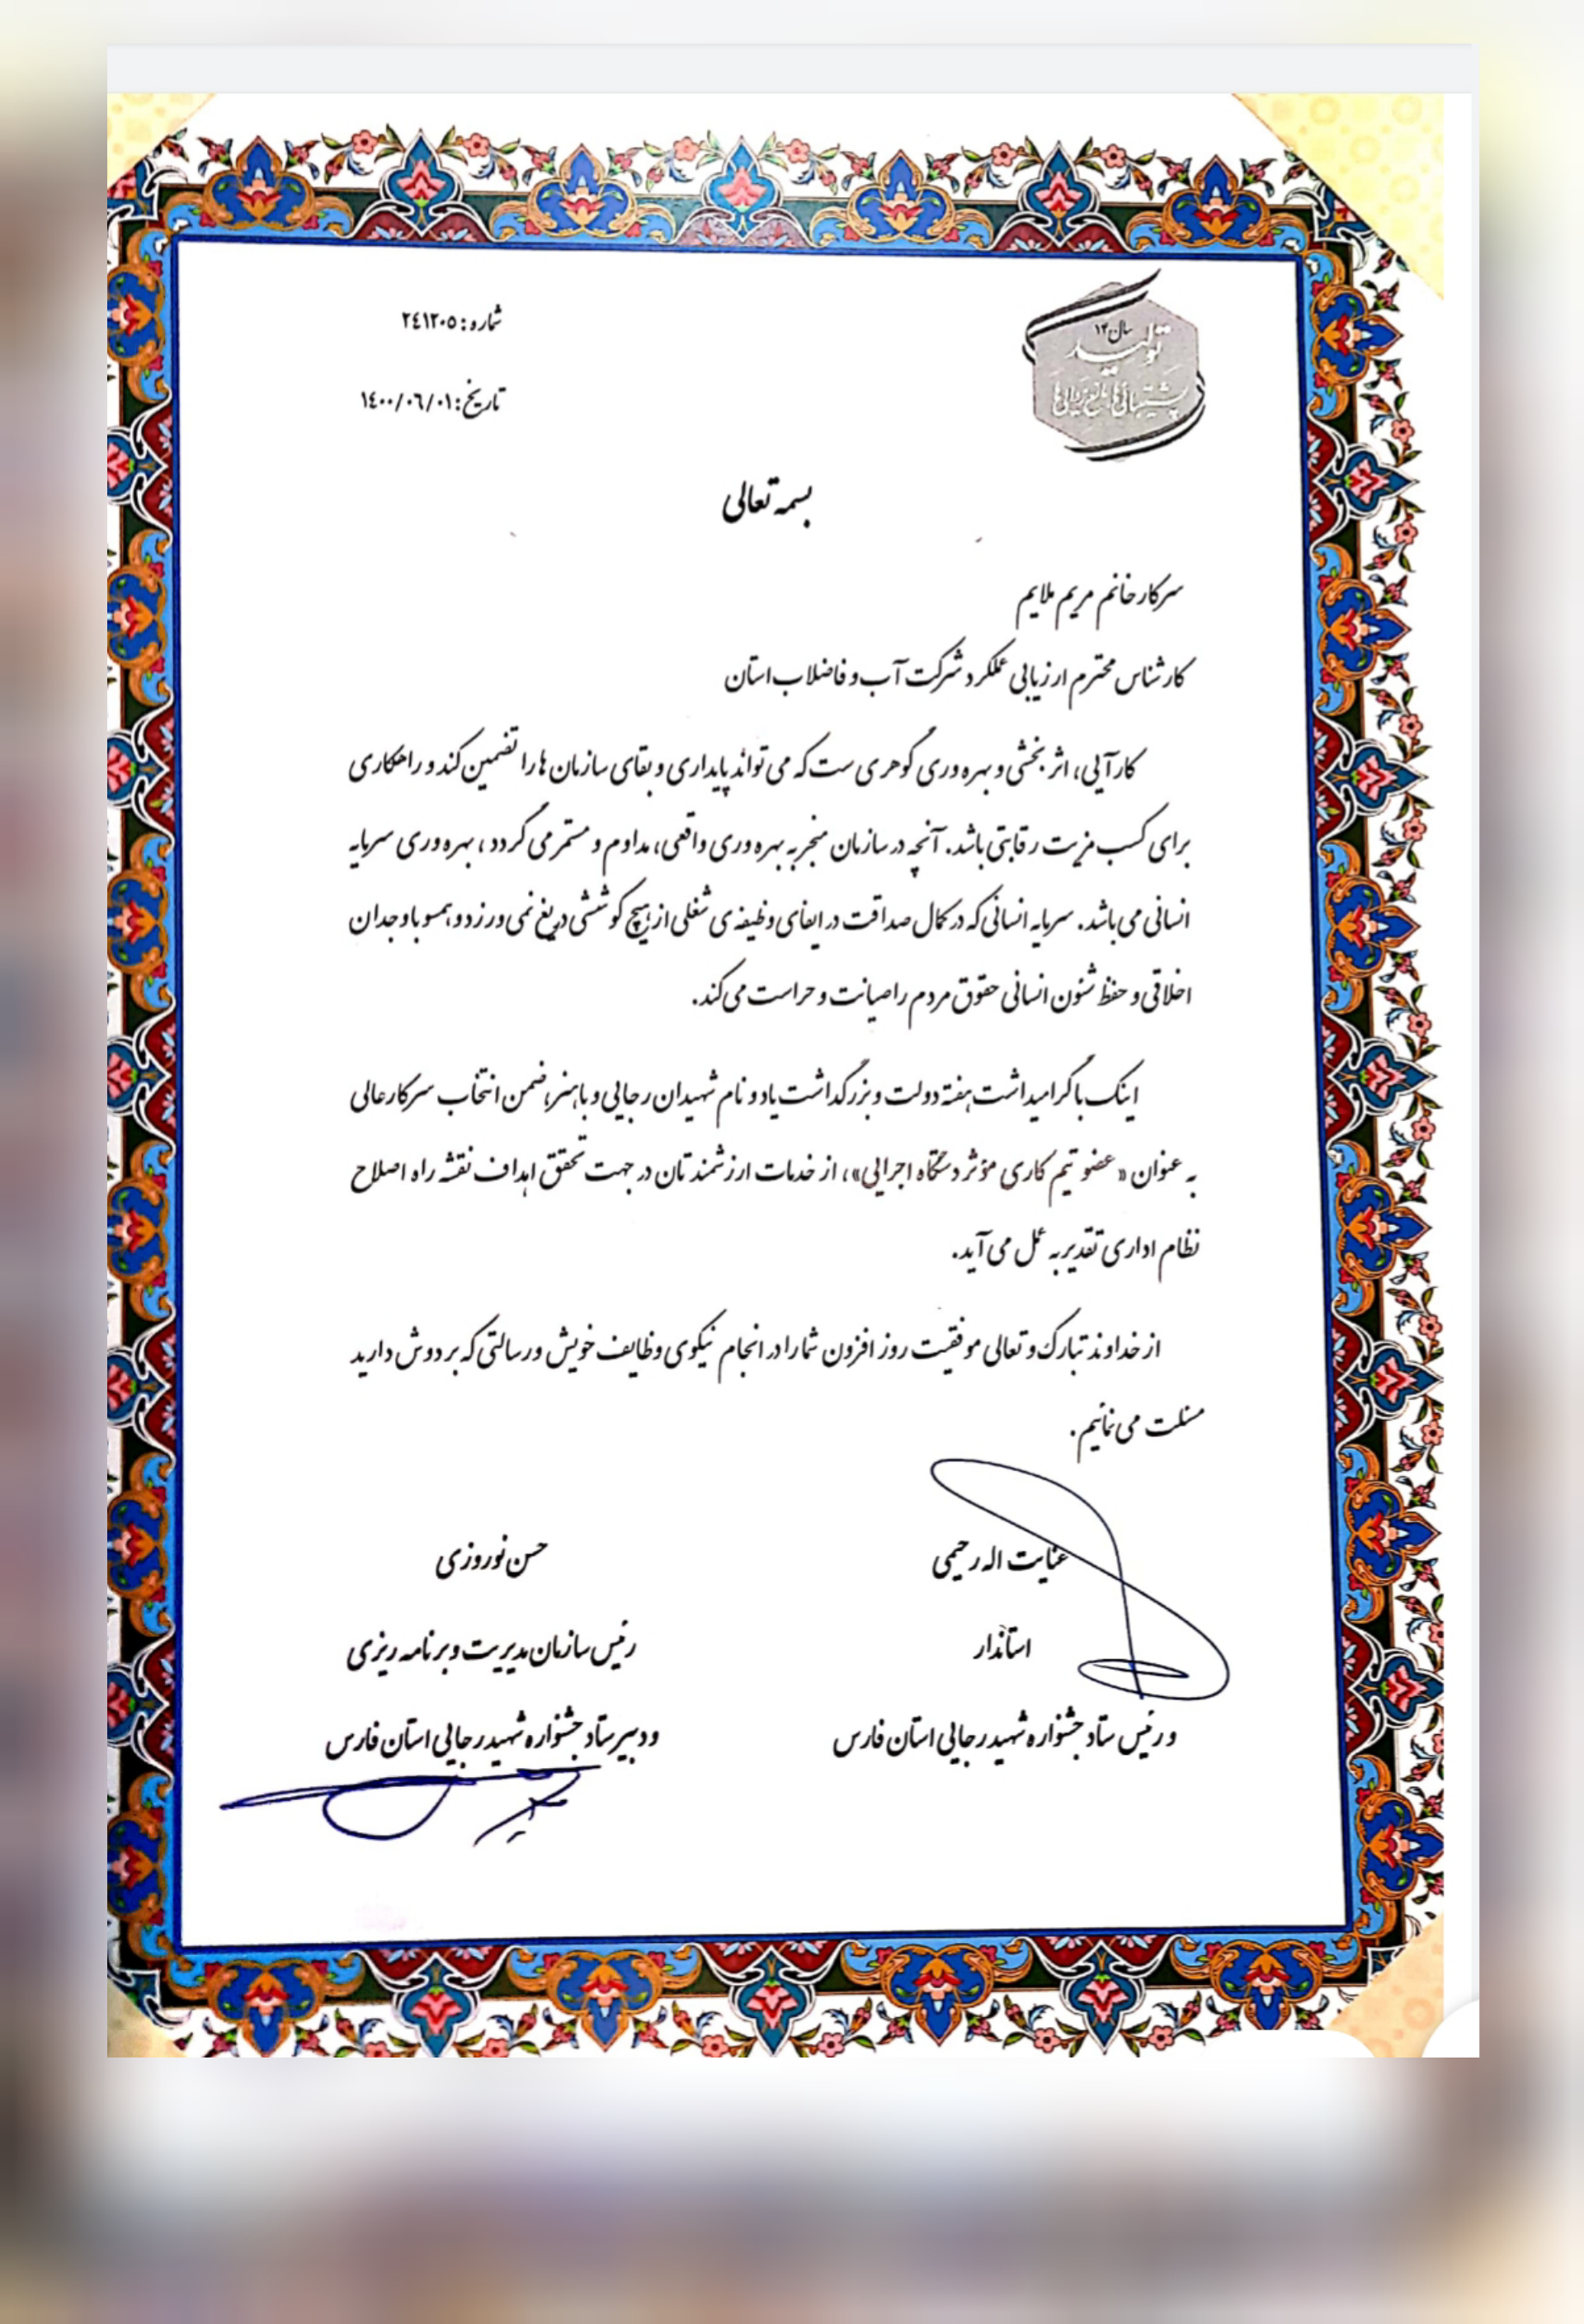 شماره: ۲۴۱۲۰۵
تاریخ: ۱۴۰۰/۰۶/۰۱
سال ۱۴
تولید
پشتیبانی‌ها، مانع‌زدایی‌ها
بسمه تعالی
سرکار خانم مریم ملایم
کارشناس محترم ارزیابی عملکرد شرکت آب و فاضلاب استان
کارآیی، اثر بخشی و بهره وری گوهری ست که می تواند پایداری و بقای سازمان ها را تضمین کند و راهکاری
برای کسب مزیت رقابتی باشد. آنچه در سازمان منجر به بهره وری واقعی، مداوم و مستمر می گردد، بهره وری سرمایه
انسانی می باشد. سرمایه انسانی که در کمال صداقت در ایفای وظیفه ی شغلی از هیچ کوششی دریغ نمی ورزد و همسو با وجدان
اخلاقی و حفظ شئون انسانی حقوق مردم را صیانت و حراست می کند.
اینک با گرامیداشت هفته دولت و بزرگداشت یاد و نام شهیدان رجایی و باهنر، ضمن انتخاب سرکار عالی
به عنوان «عضو تیم کاری مؤثر دستگاه اجرایی»، از خدمات ارزشمندتان در جهت تحقق اهداف نقشه راه اصلاح
نظام اداری تقدیر به عمل می آید.
از خداوند تبارک و تعالی موفقیت روز افزون شما را در انجام نیکوی وظایف خویش و رسالتی که بر دوش دارید
مسئلت می نمائیم.
عنایت اله رحیمی
استاندار
و رئیس ستاد جشنواره شهید رجایی استان فارس
حسن نوروزی
رئیس سازمان مدیریت و برنامه ریزی
و دبیر ستاد جشنواره شهید رجایی استان فارس